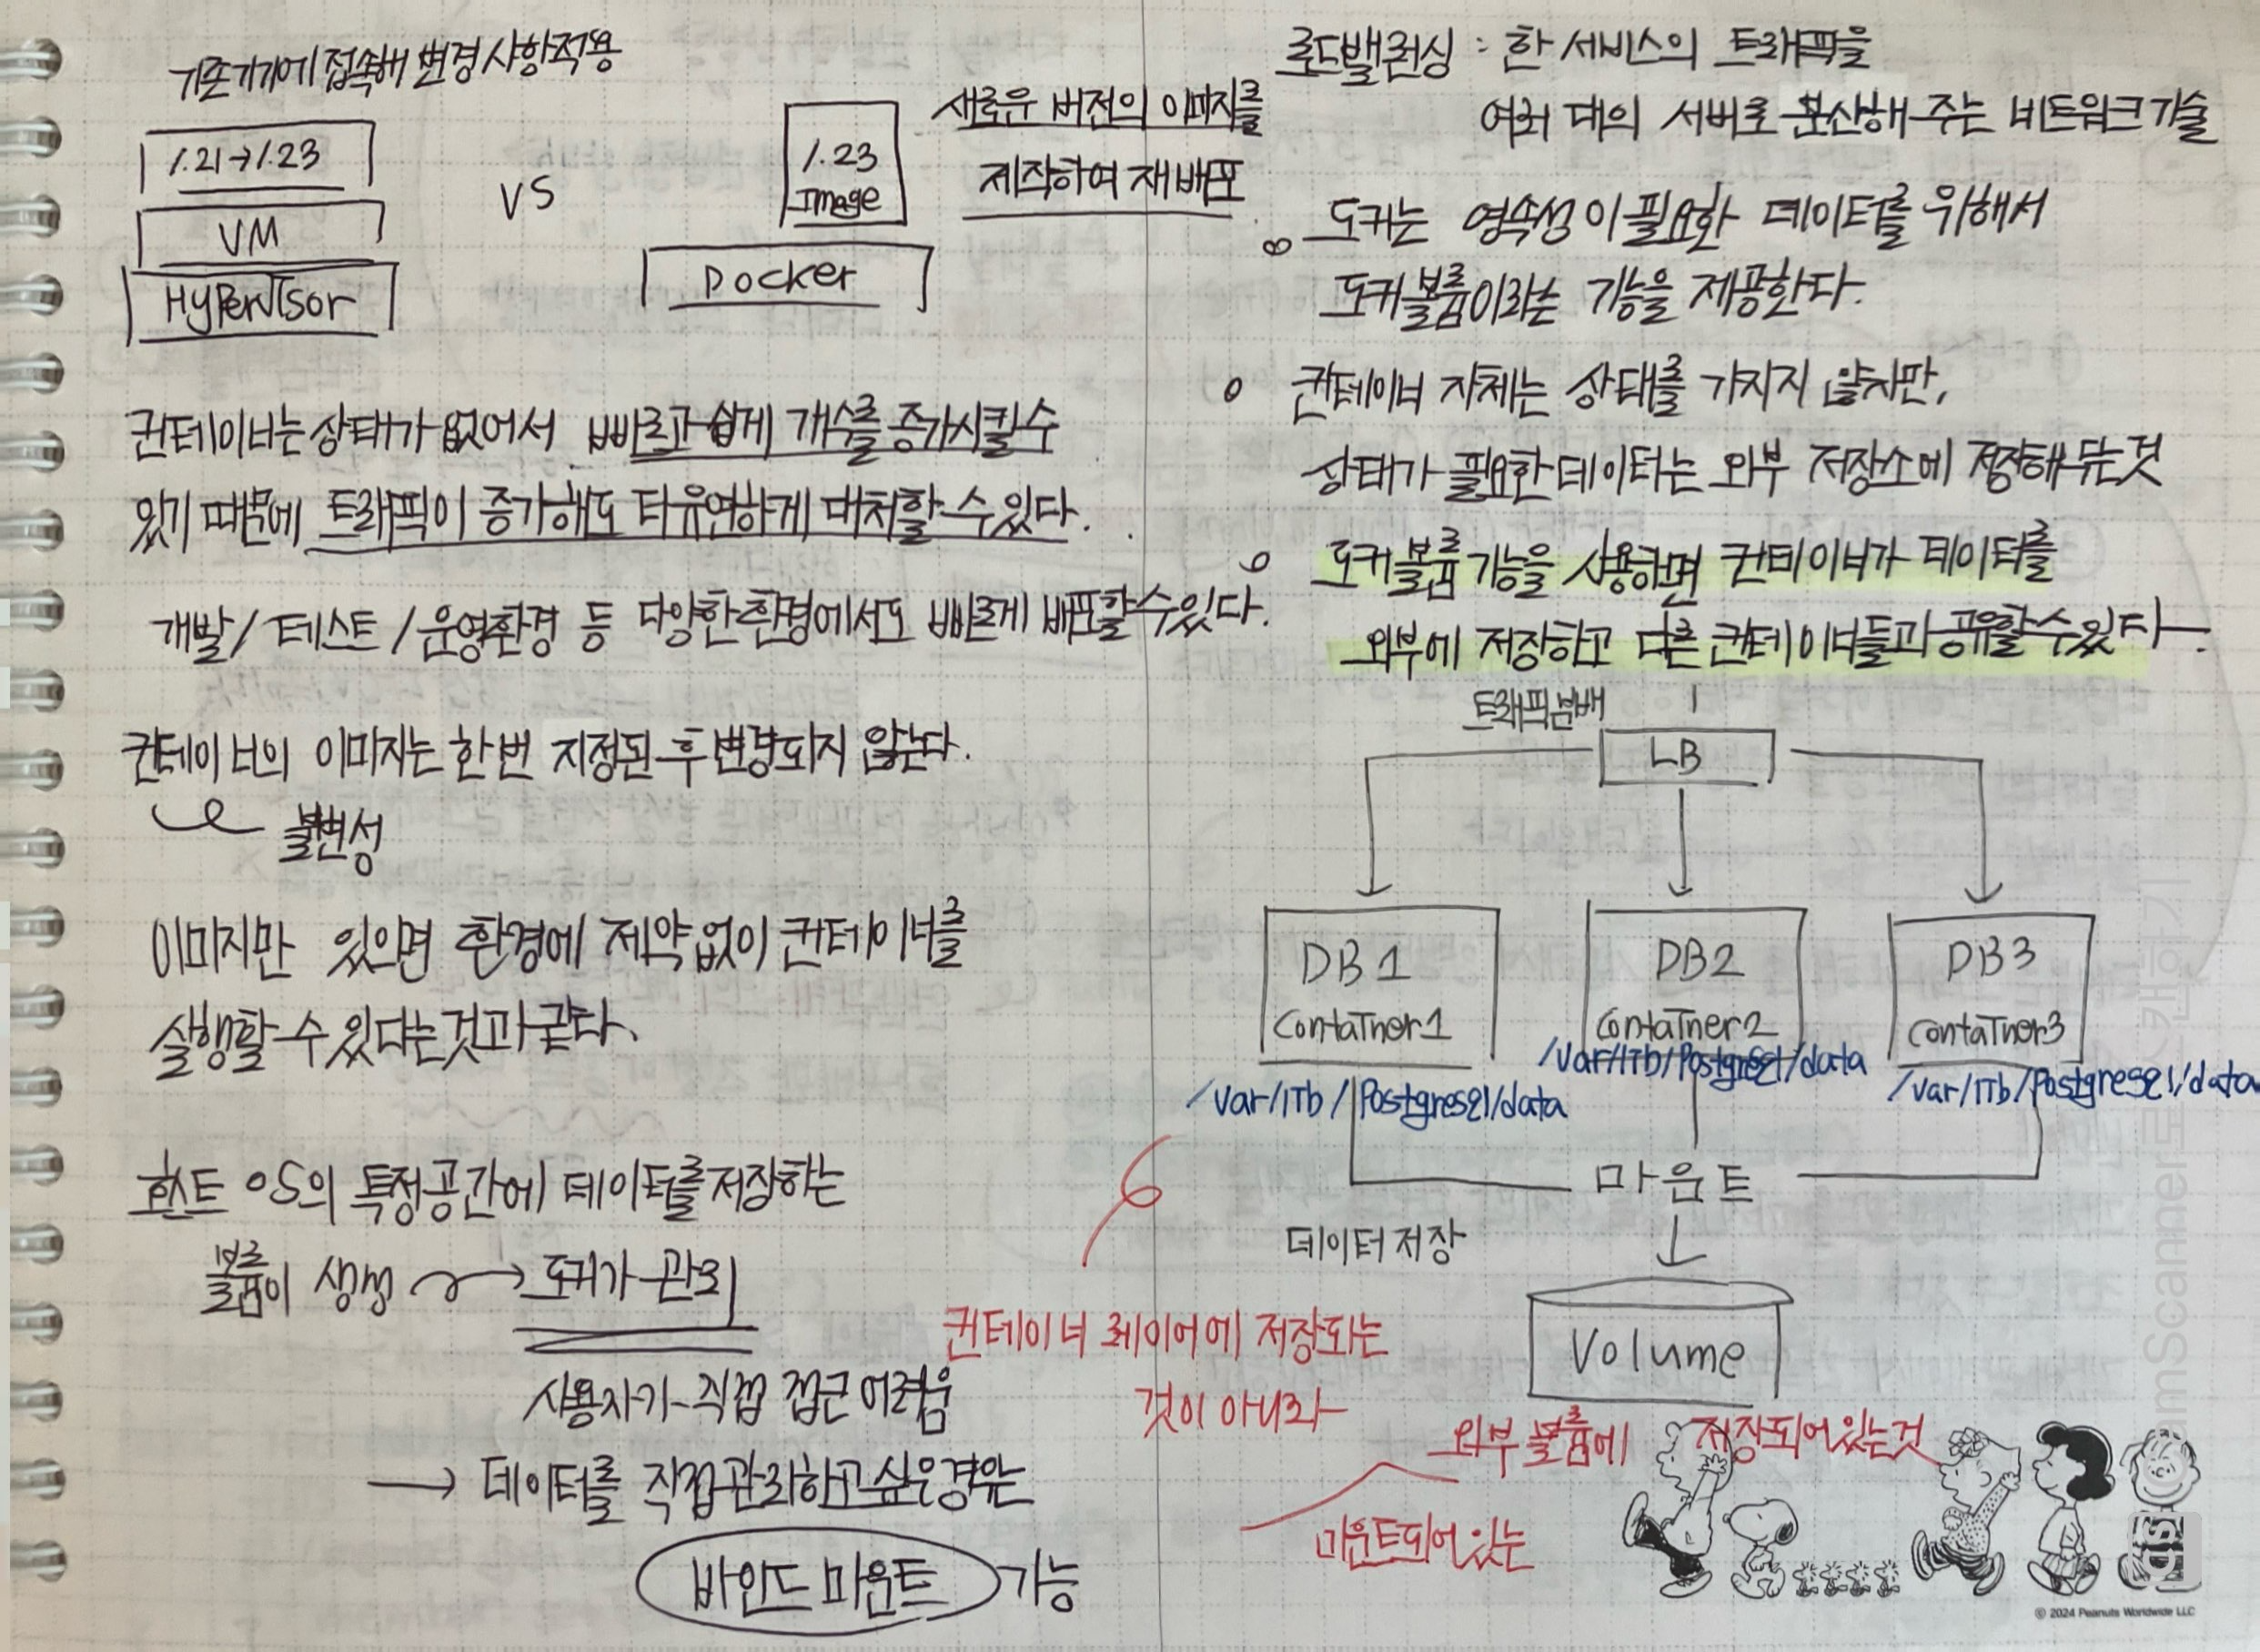 기존기기에 접속해 변경사항적용
1.21→1.23
VM
HyPerVIsor
VS
1.23
Image
Docker
새로운 버전의 이미지를
제작하여 재배포
컨테이너는 상태가 없어서 빠르고 쉽게 개수를 증가시킬 수
있기 때문에 트래픽이 증가해도 더 유연하게 대처할 수 있다.
개발/테스트/운영환경 등 다양한 환경에서도 빠르게 배포할 수 있다.
컨테이너의 이미지는 한번 지정된 후 변경되지 않는다.
불변성
이미지만 있으면 환경에 제약없이 컨테이너를
실행할 수 있다는것과 같다.
호스트 OS의 특정공간에 데이터를 저장하는
볼륨이 생성 → 도커가 관리
사용자가 직접 접근 어려움
→ 데이터를 직접 관리하고 싶은 경우는
바인드 마운트 가능
로드밸런싱 : 한 서비스의 트래픽을
여러 대의 서버로 분산해 주는 네트워크 기술
도커는 영속성이 필요한 데이터를 위해서
도커 볼륨이라는 기능을 제공한다.
컨테이너 자체는 상태를 가지지 않지만,
상태가 필요한 데이터는 외부 저장소에 저장해 두는 것
도커 볼륨 기능을 사용하면 컨테이너가 데이터를
외부에 저장하고 다른 컨테이너들과 공유할 수 있다.
트래픽분배
LB
DB1
ContaIner1
DB2
ContaIner2
DB3
ContaIner3
/var/lIb/PostgresQl/data
/var/lIb/PostgresQl/data
/var/lIb/PostgresQl/data
마운트
데이터 저장
Volume
컨테이너 레이어에 저장되는
것이 아니라
외부 볼륨에 저장되어 있는것
마운트되어 있는
© 2024 Peanuts Worldwide LLC
CamScanner로 스캔하기